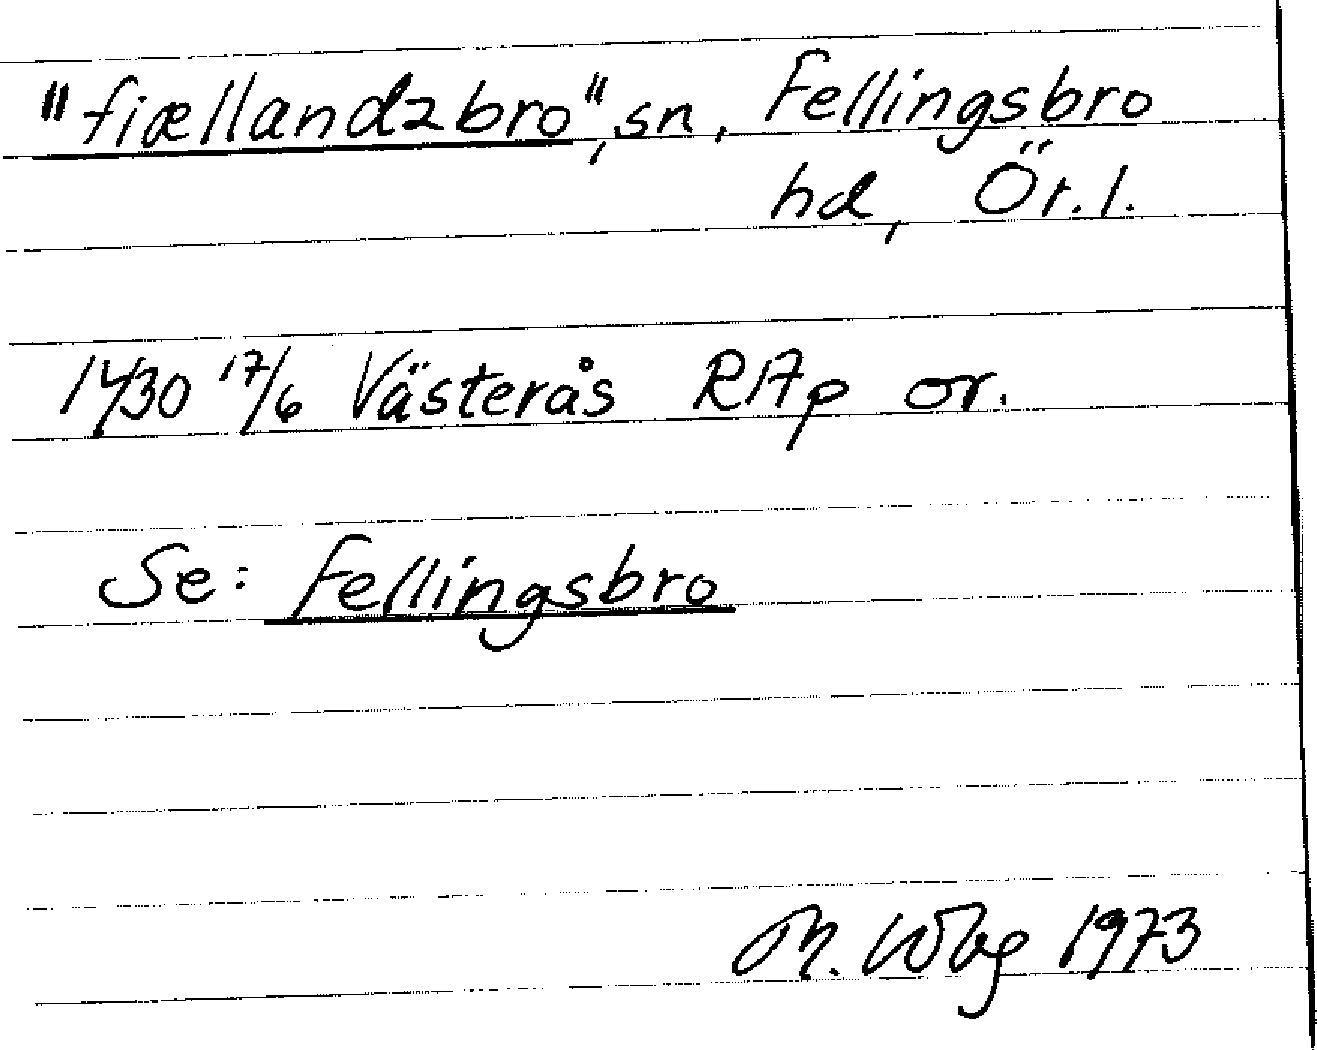 "fiællandzbro", sn, Fellingsbro
hd, Ör.l.
1430 17/6 Västerås RAp or.
Se: Fellingsbro
M. 1973